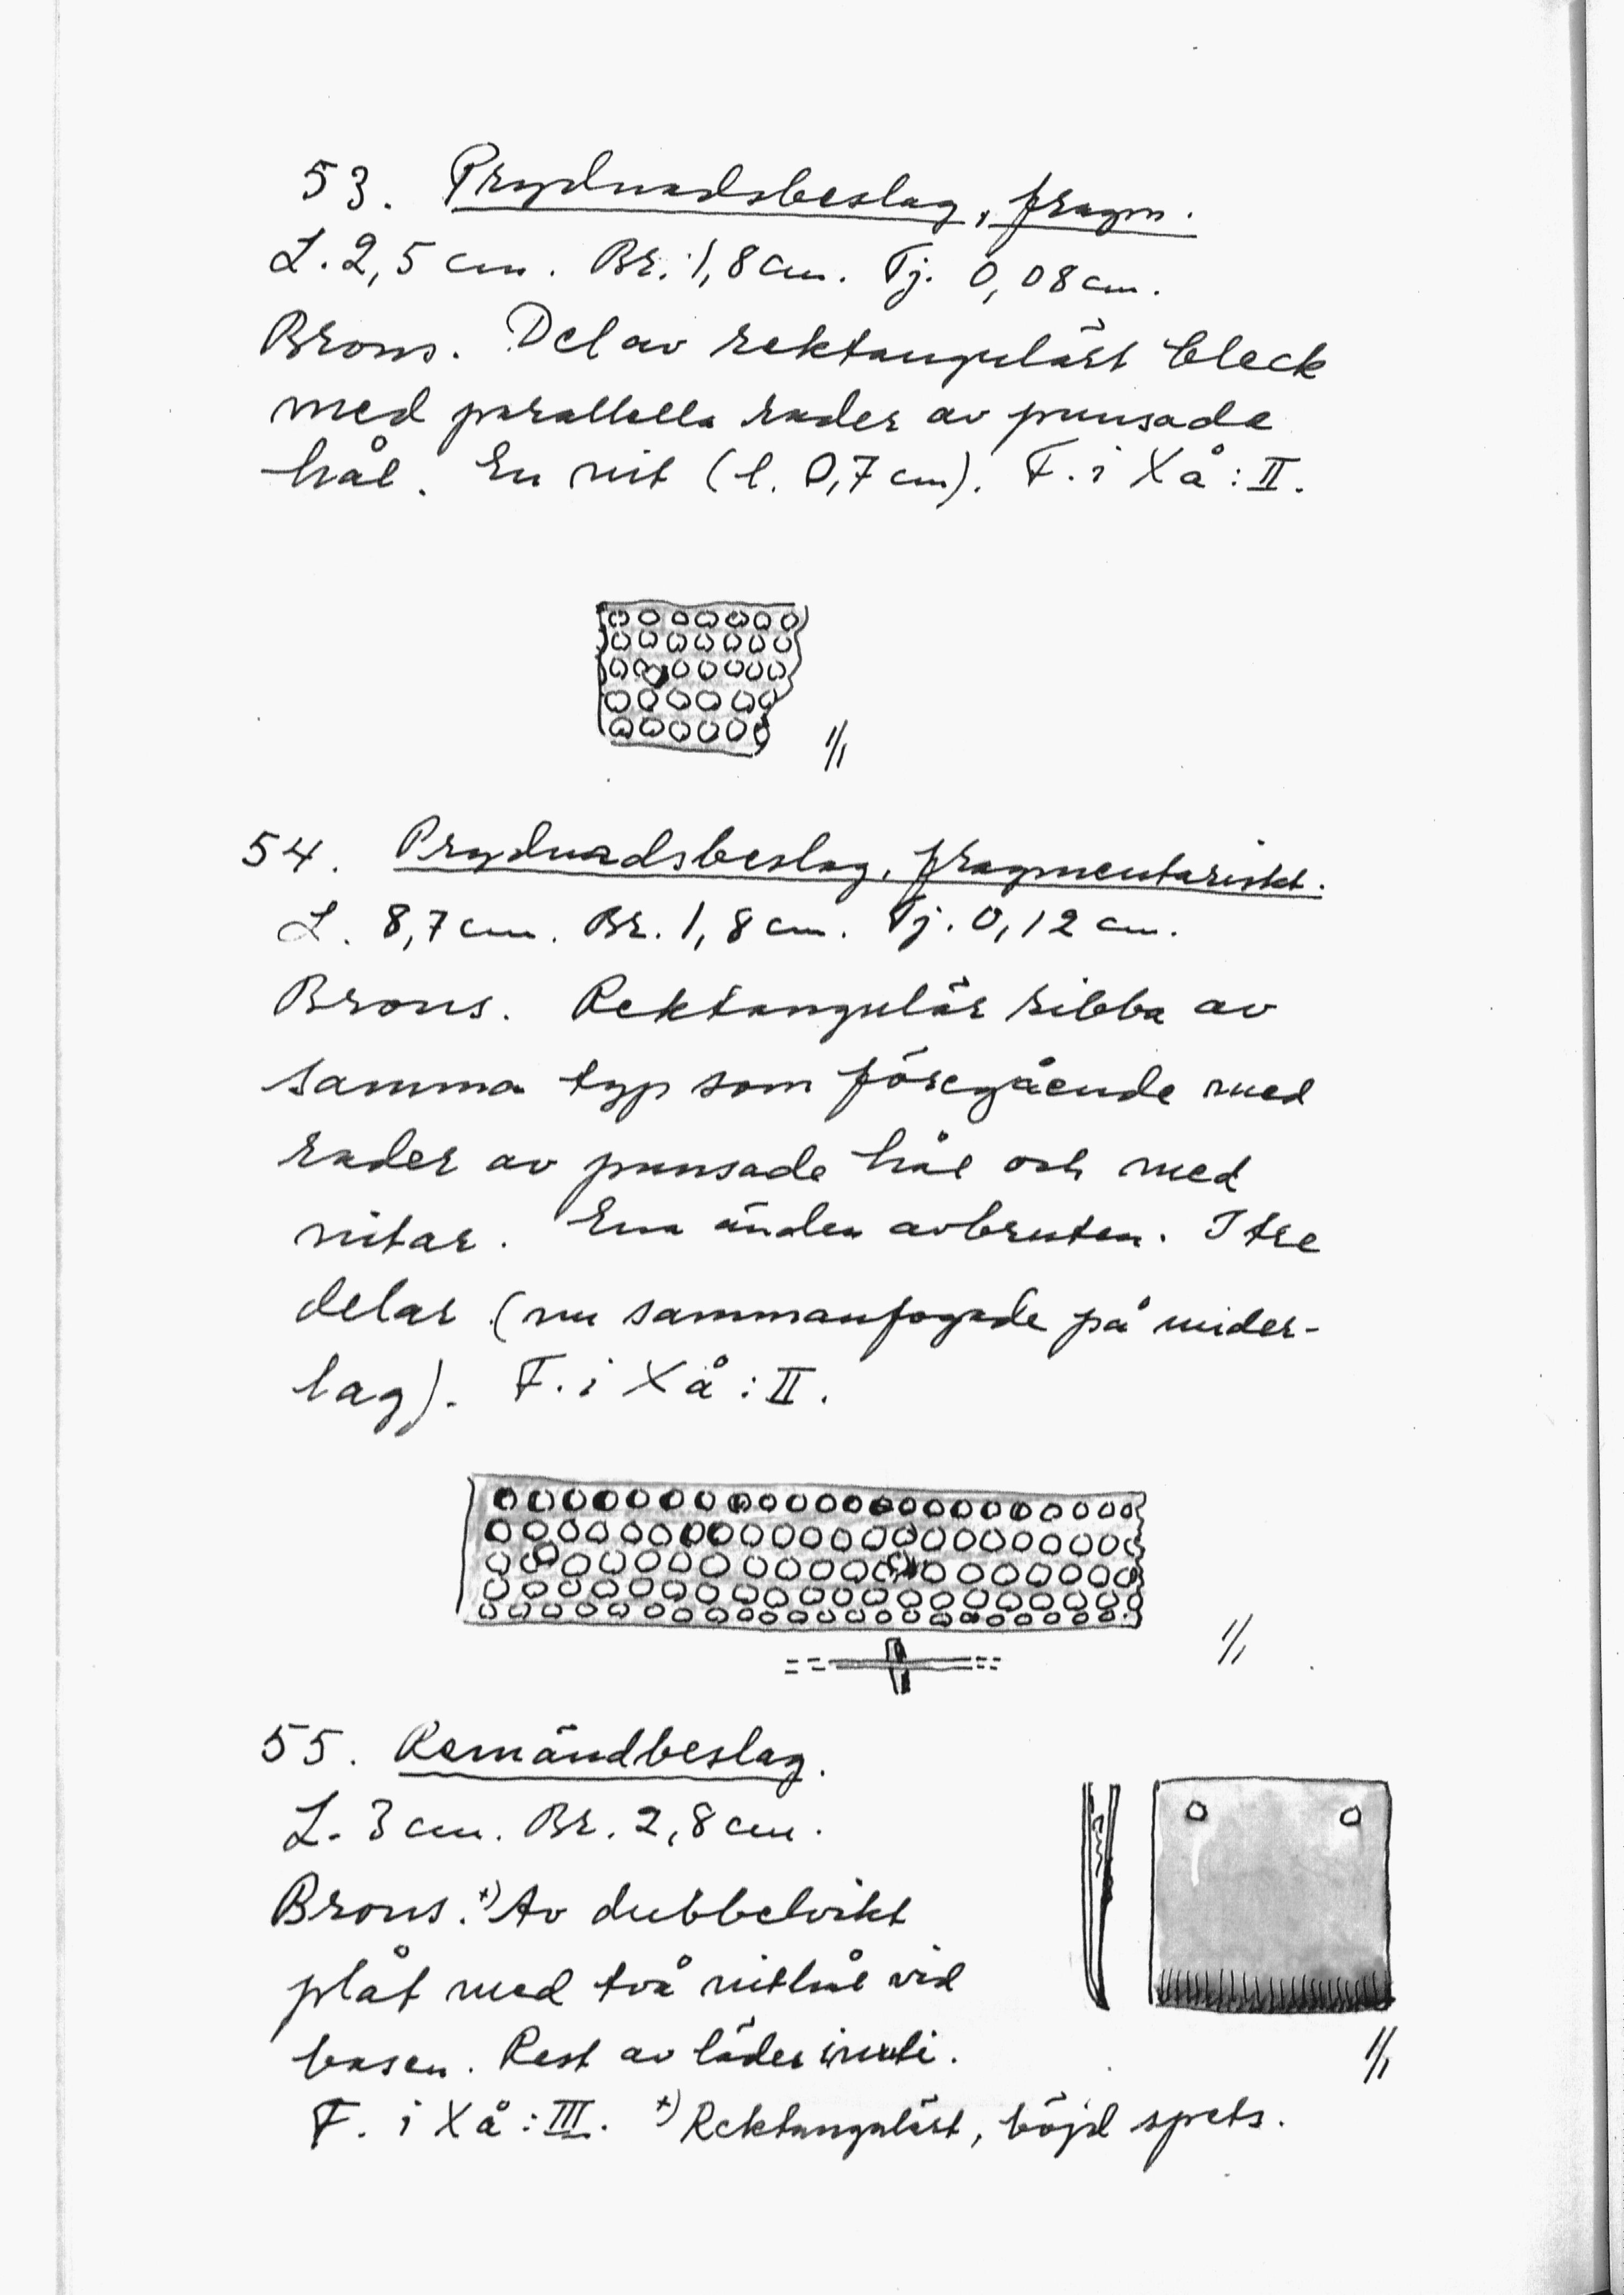 53. Prydnadsbeslag, fragm.
L. 2,5 cm. Br. 1,8 cm. Tj. 0,08 cm.
Brons. Del av rektangulärt bleck
med parallella rader av punsade
hål. En nit (l. 0,7 cm). F. i Xå:II.
1/1
54. Prydnadsbeslag, fragmentariskt.
L. 8,7 cm. Br. 1,8 cm. Tj. 0,12 cm.
Brons. Rektangulär ribba av
samma typ som föregående med
rader av punsade hål och med
nitar. Ena änden avbruten. I tre
delar (nu sammanfogade på under-
lag). F. i Xå:II.
1/1
55. Remändbeslag.
L. 3 cm. Br. 2,8 cm.
Brons.+) Av dubbelvikt
plåt med två nithål vid
basen. Rest av läder inuti.
1/1
F. i Xå:III. +) Rektangulärt, böjd spets.